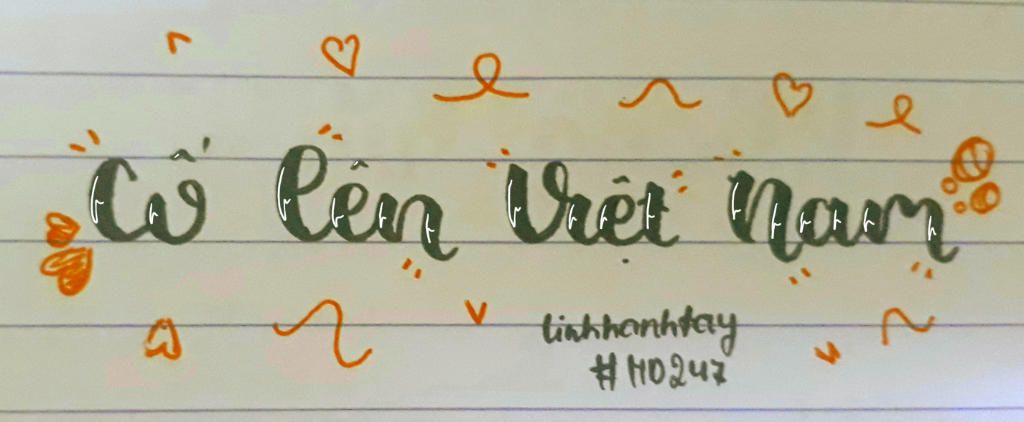 Cố lên Việt Nam
linhhanhtay
#HD247